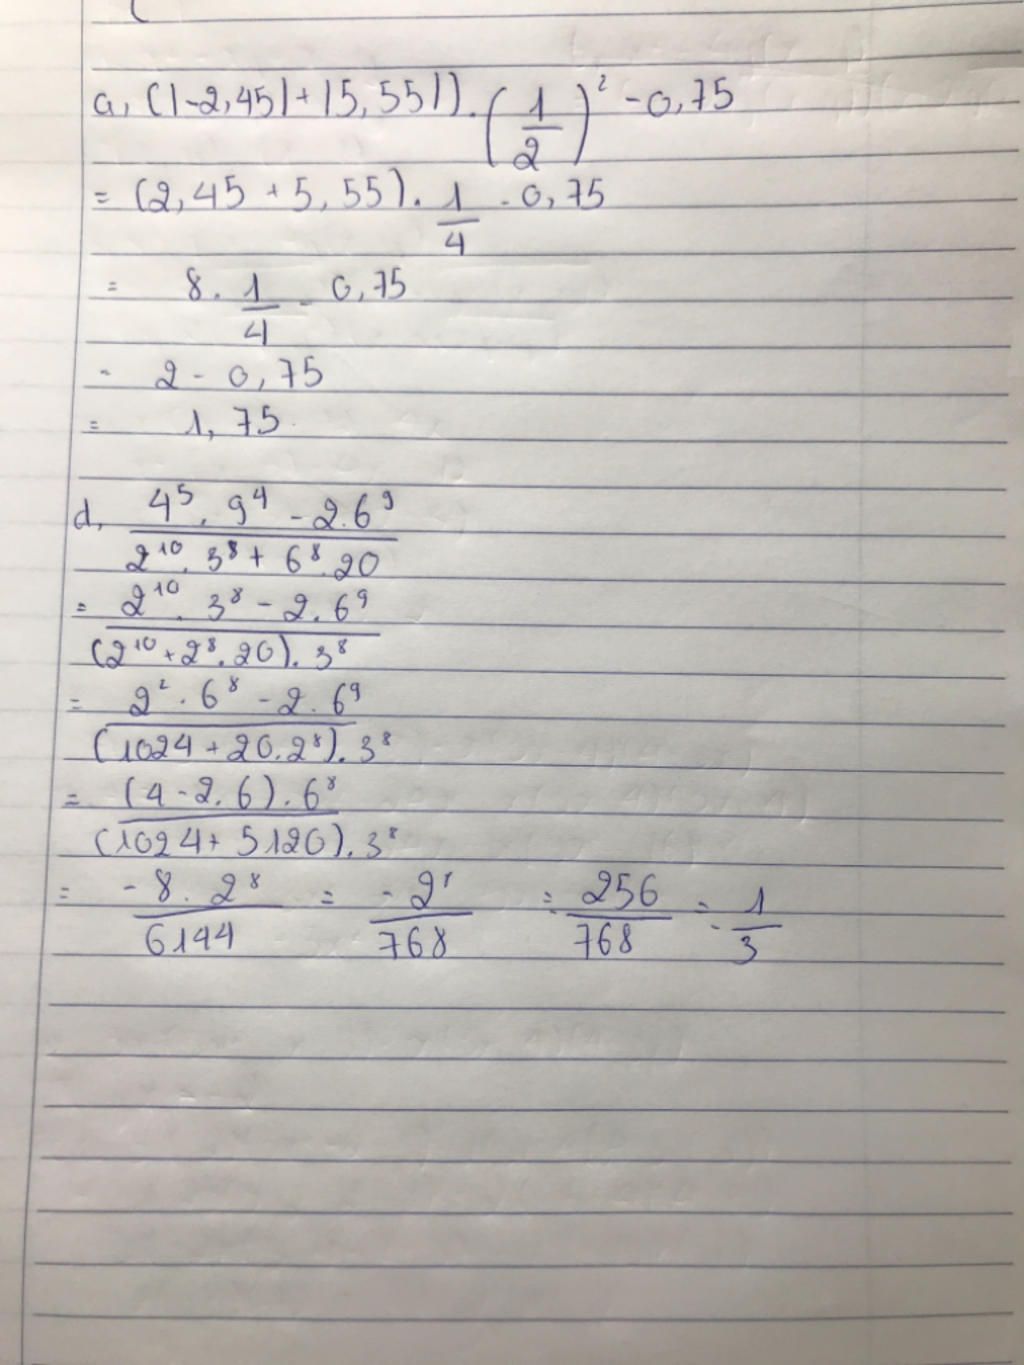 a, (|-2,45| + |5,55|) . (1/2)² - 0,75
= (2,45 + 5,55) . 1/4 - 0,75
= 8 . 1/4 - 0,75
= 2 - 0,75
= 1,75
d, 4⁵ . 9⁴ - 2.6⁹
2¹⁰ . 3⁸ + 6⁸ . 20
= 2¹⁰ . 3⁸ - 2 . 6⁹
(2¹⁰ + 2⁸ . 20) . 3⁸
= 2² . 6⁸ - 2 . 6⁹
(1024 + 20 . 2⁸) . 3⁸
= (4 - 2 . 6) . 6⁸
(1024 + 5120) . 3⁸
= -8 . 2⁸ / 6144 = -2⁸ / 768 = - 256 / 768 = - 1/3